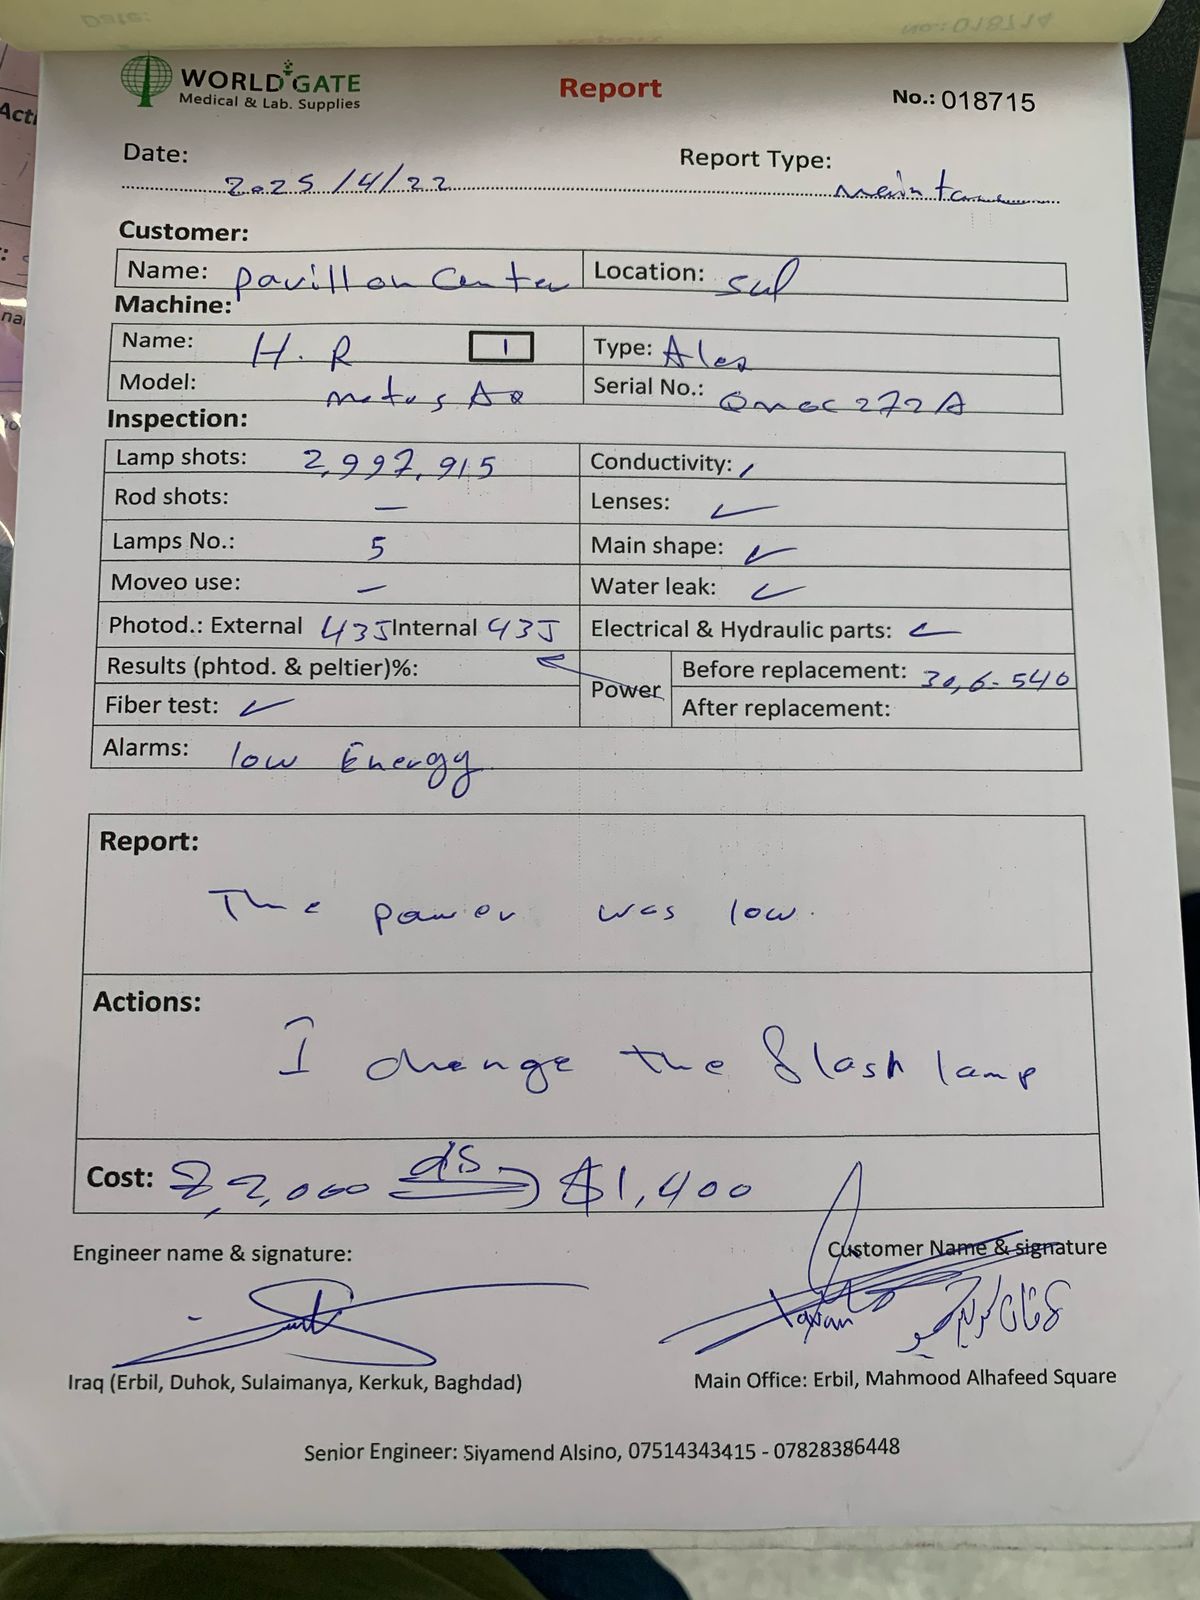 WORLD GATE
Medical & Lab. Supplies
Report
No.: 018715
Date: 2025/4/22
Report Type:
Customer:
Name: pavillon Center Location: sul
Machine:
Name: H. R 1 Type: Alex
Model: motus Serial No.:
Inspection:
Lamp shots: 2,997,915 Conductivity:
Rod shots: — Lenses: ✓
Lamps No.: 5 Main shape: ✓
Moveo use: — Water leak: ✓
Photod.: External 43J Internal 43J Electrical & Hydraulic parts: ✓
Results (phtod. & peltier)%: Power Before replacement: 30,6 - 540
Fiber test: ✓ After replacement:
Alarms: low Energy
Report:
The power was low.
Actions:
I change the flash lamp
Cost: $2,000 dis $1,400
Engineer name & signature:
Customer Name & signature
Iraq (Erbil, Duhok, Sulaimanya, Kerkuk, Baghdad)
Main Office: Erbil, Mahmood Alhafeed Square
Senior Engineer: Siyamend Alsino, 07514343415 - 07828386448